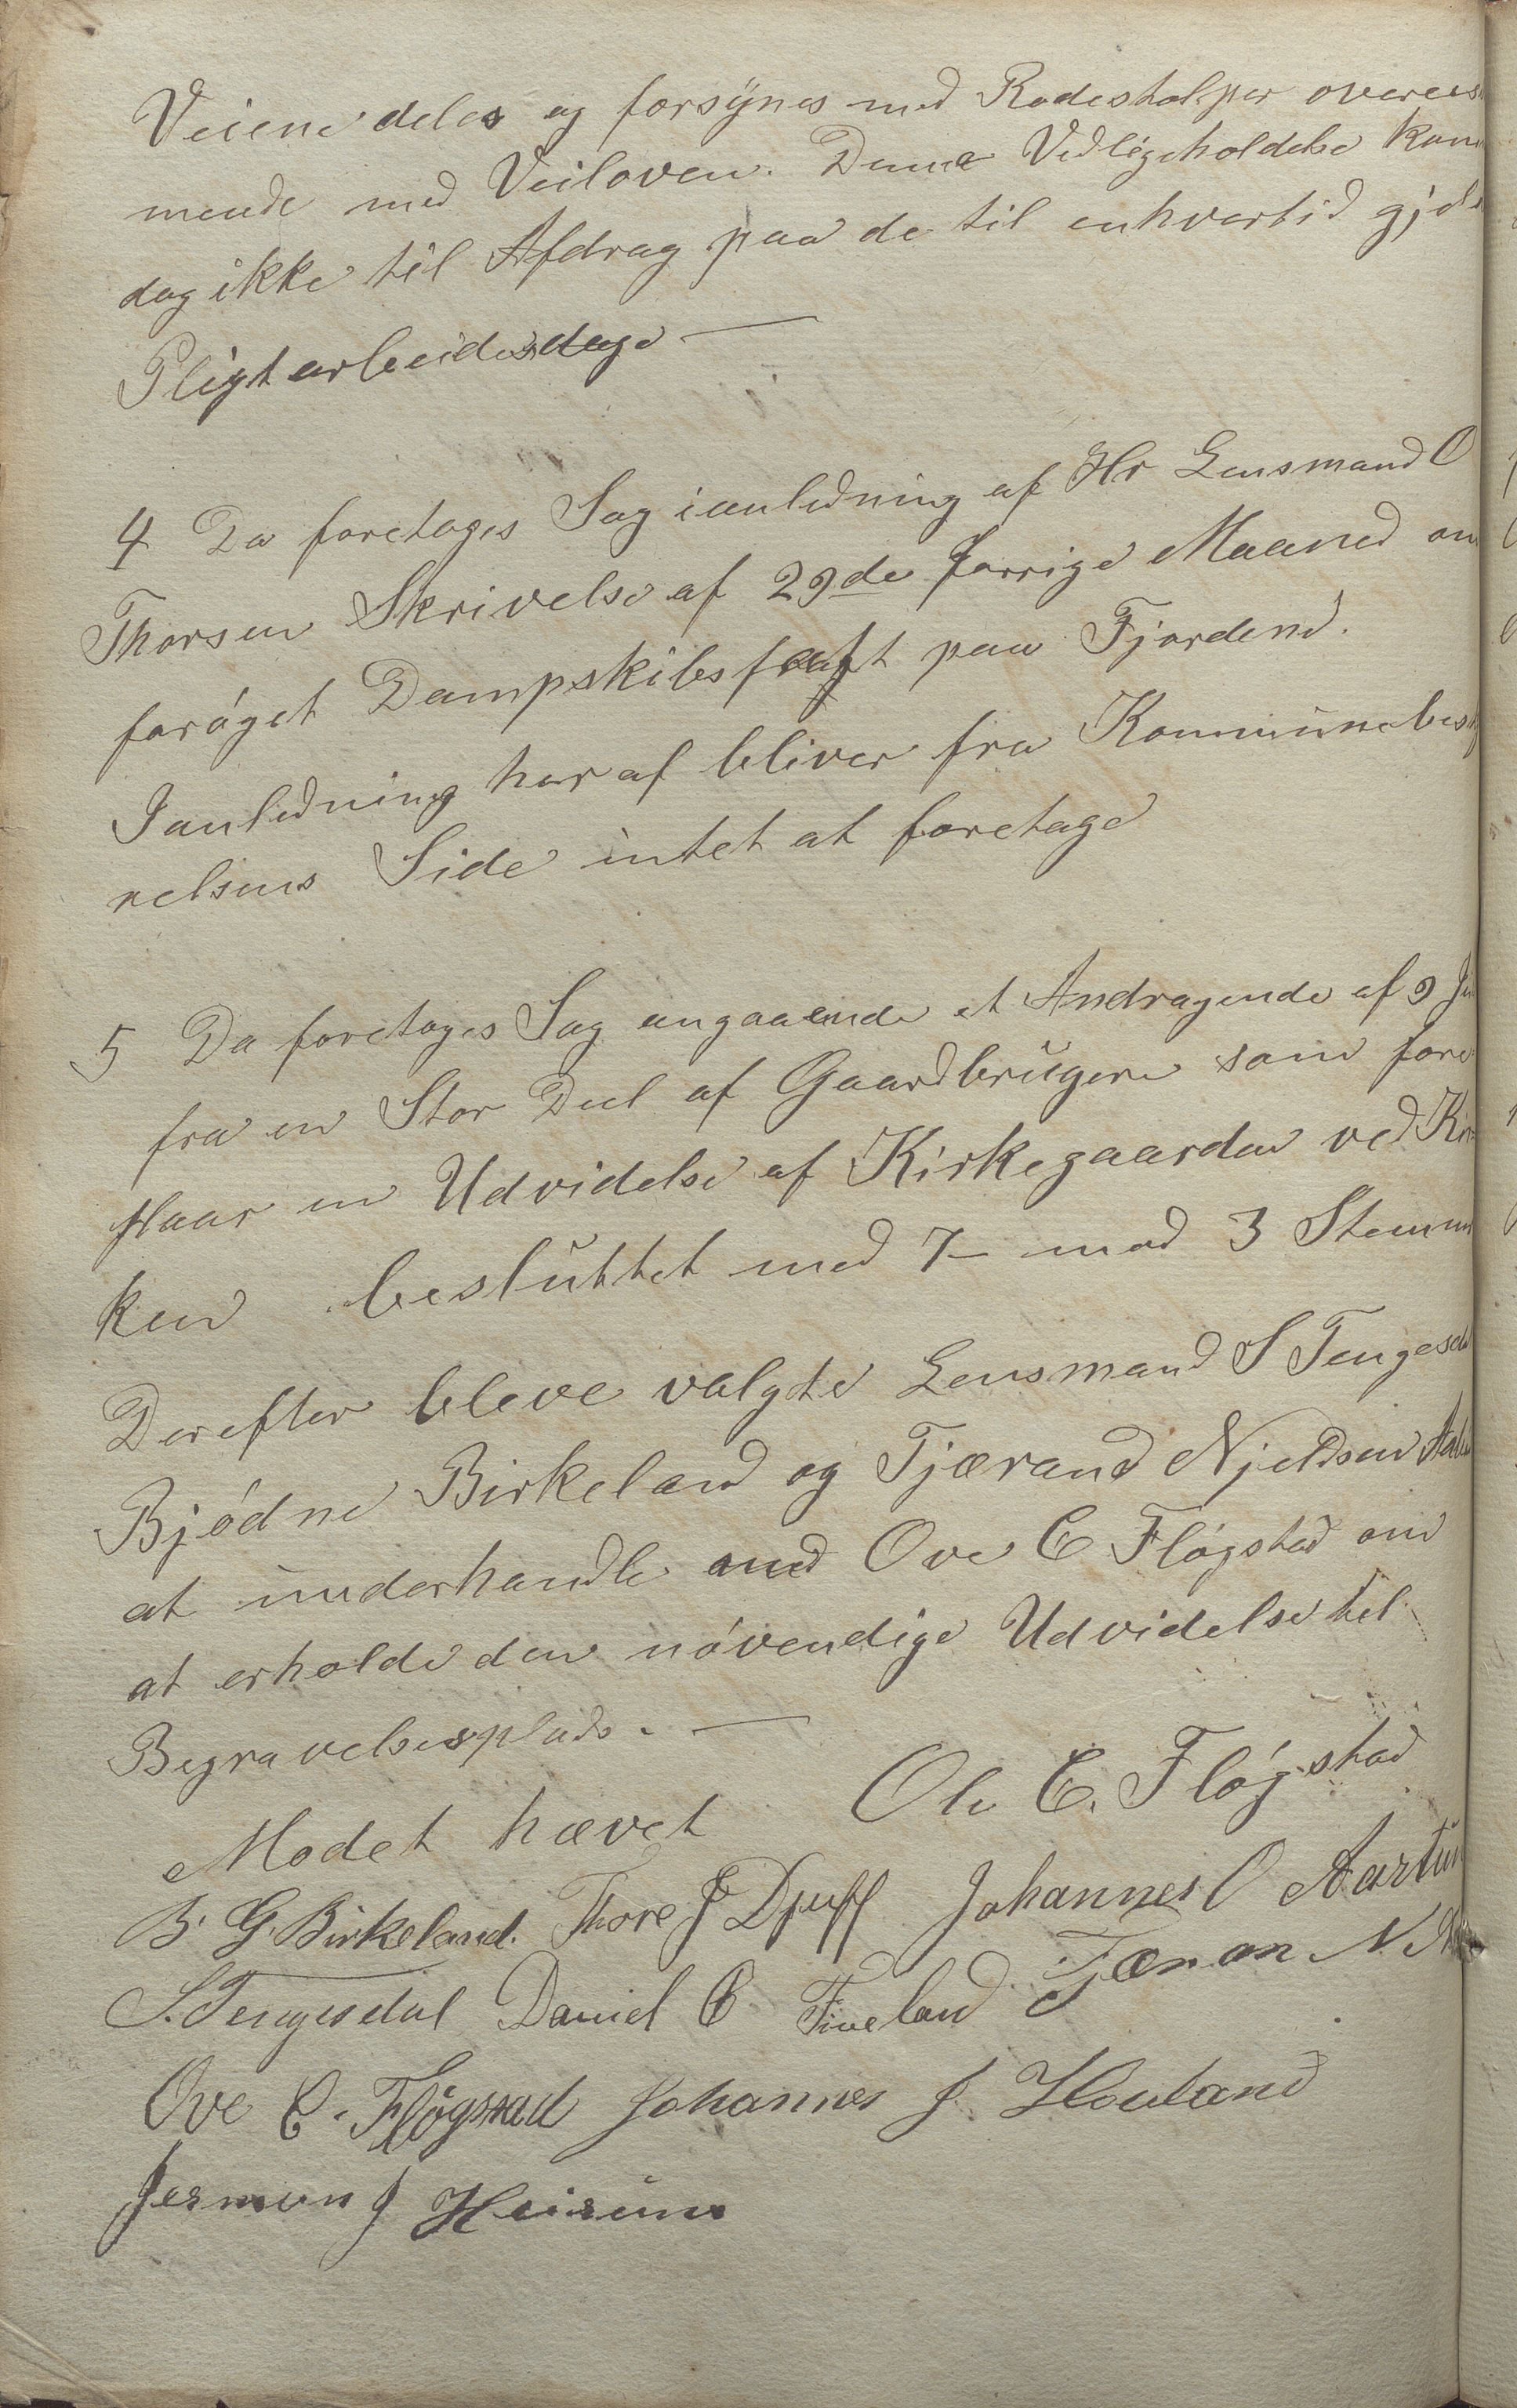 Veiene deles og forsynes med Rodestolper overens
mende med Veiloven. Denne Vedligeholdelse kom
dog ikke til Afdrag paa de til enhvertid gjel
Pligtarbeidsdage —
4 Da foretoges Sag ianledning af Hr Lensmand O
Thorsen Skrivelse af 29de forrige Maaned om
forøget Dampskibsfart paa Fjordene.
Ianledning heraf bliver fra Kommunebesty
relsens Side intet at foretage
5 Da foretoges Sag angaaende et Andragende af 9
fra en Stor Deel af Gaardbrugere som fore
slaar en Udvidelse af Kirkegaarden ved Kir
ken besluttet med 7 – mod 3 Stemm
Derefter bleve valgte Lensmand S Tengesdal
Bjødne Birkeland og Tjærand Njeldsen
at underhandle med Ove C Fløgstad om
at erholde den nøvendige Udvidelse til
Begravelsesplads. —
Modet hævet Ole C. Fløgstad
B. G. Birkeland. Thore J Djuff Johannes O Aartun
S. Tengesdal Daniel C Fiveland Tjæran N.
Ove C. Fløgstad Johannes J Hovland
Jermun J Heirum